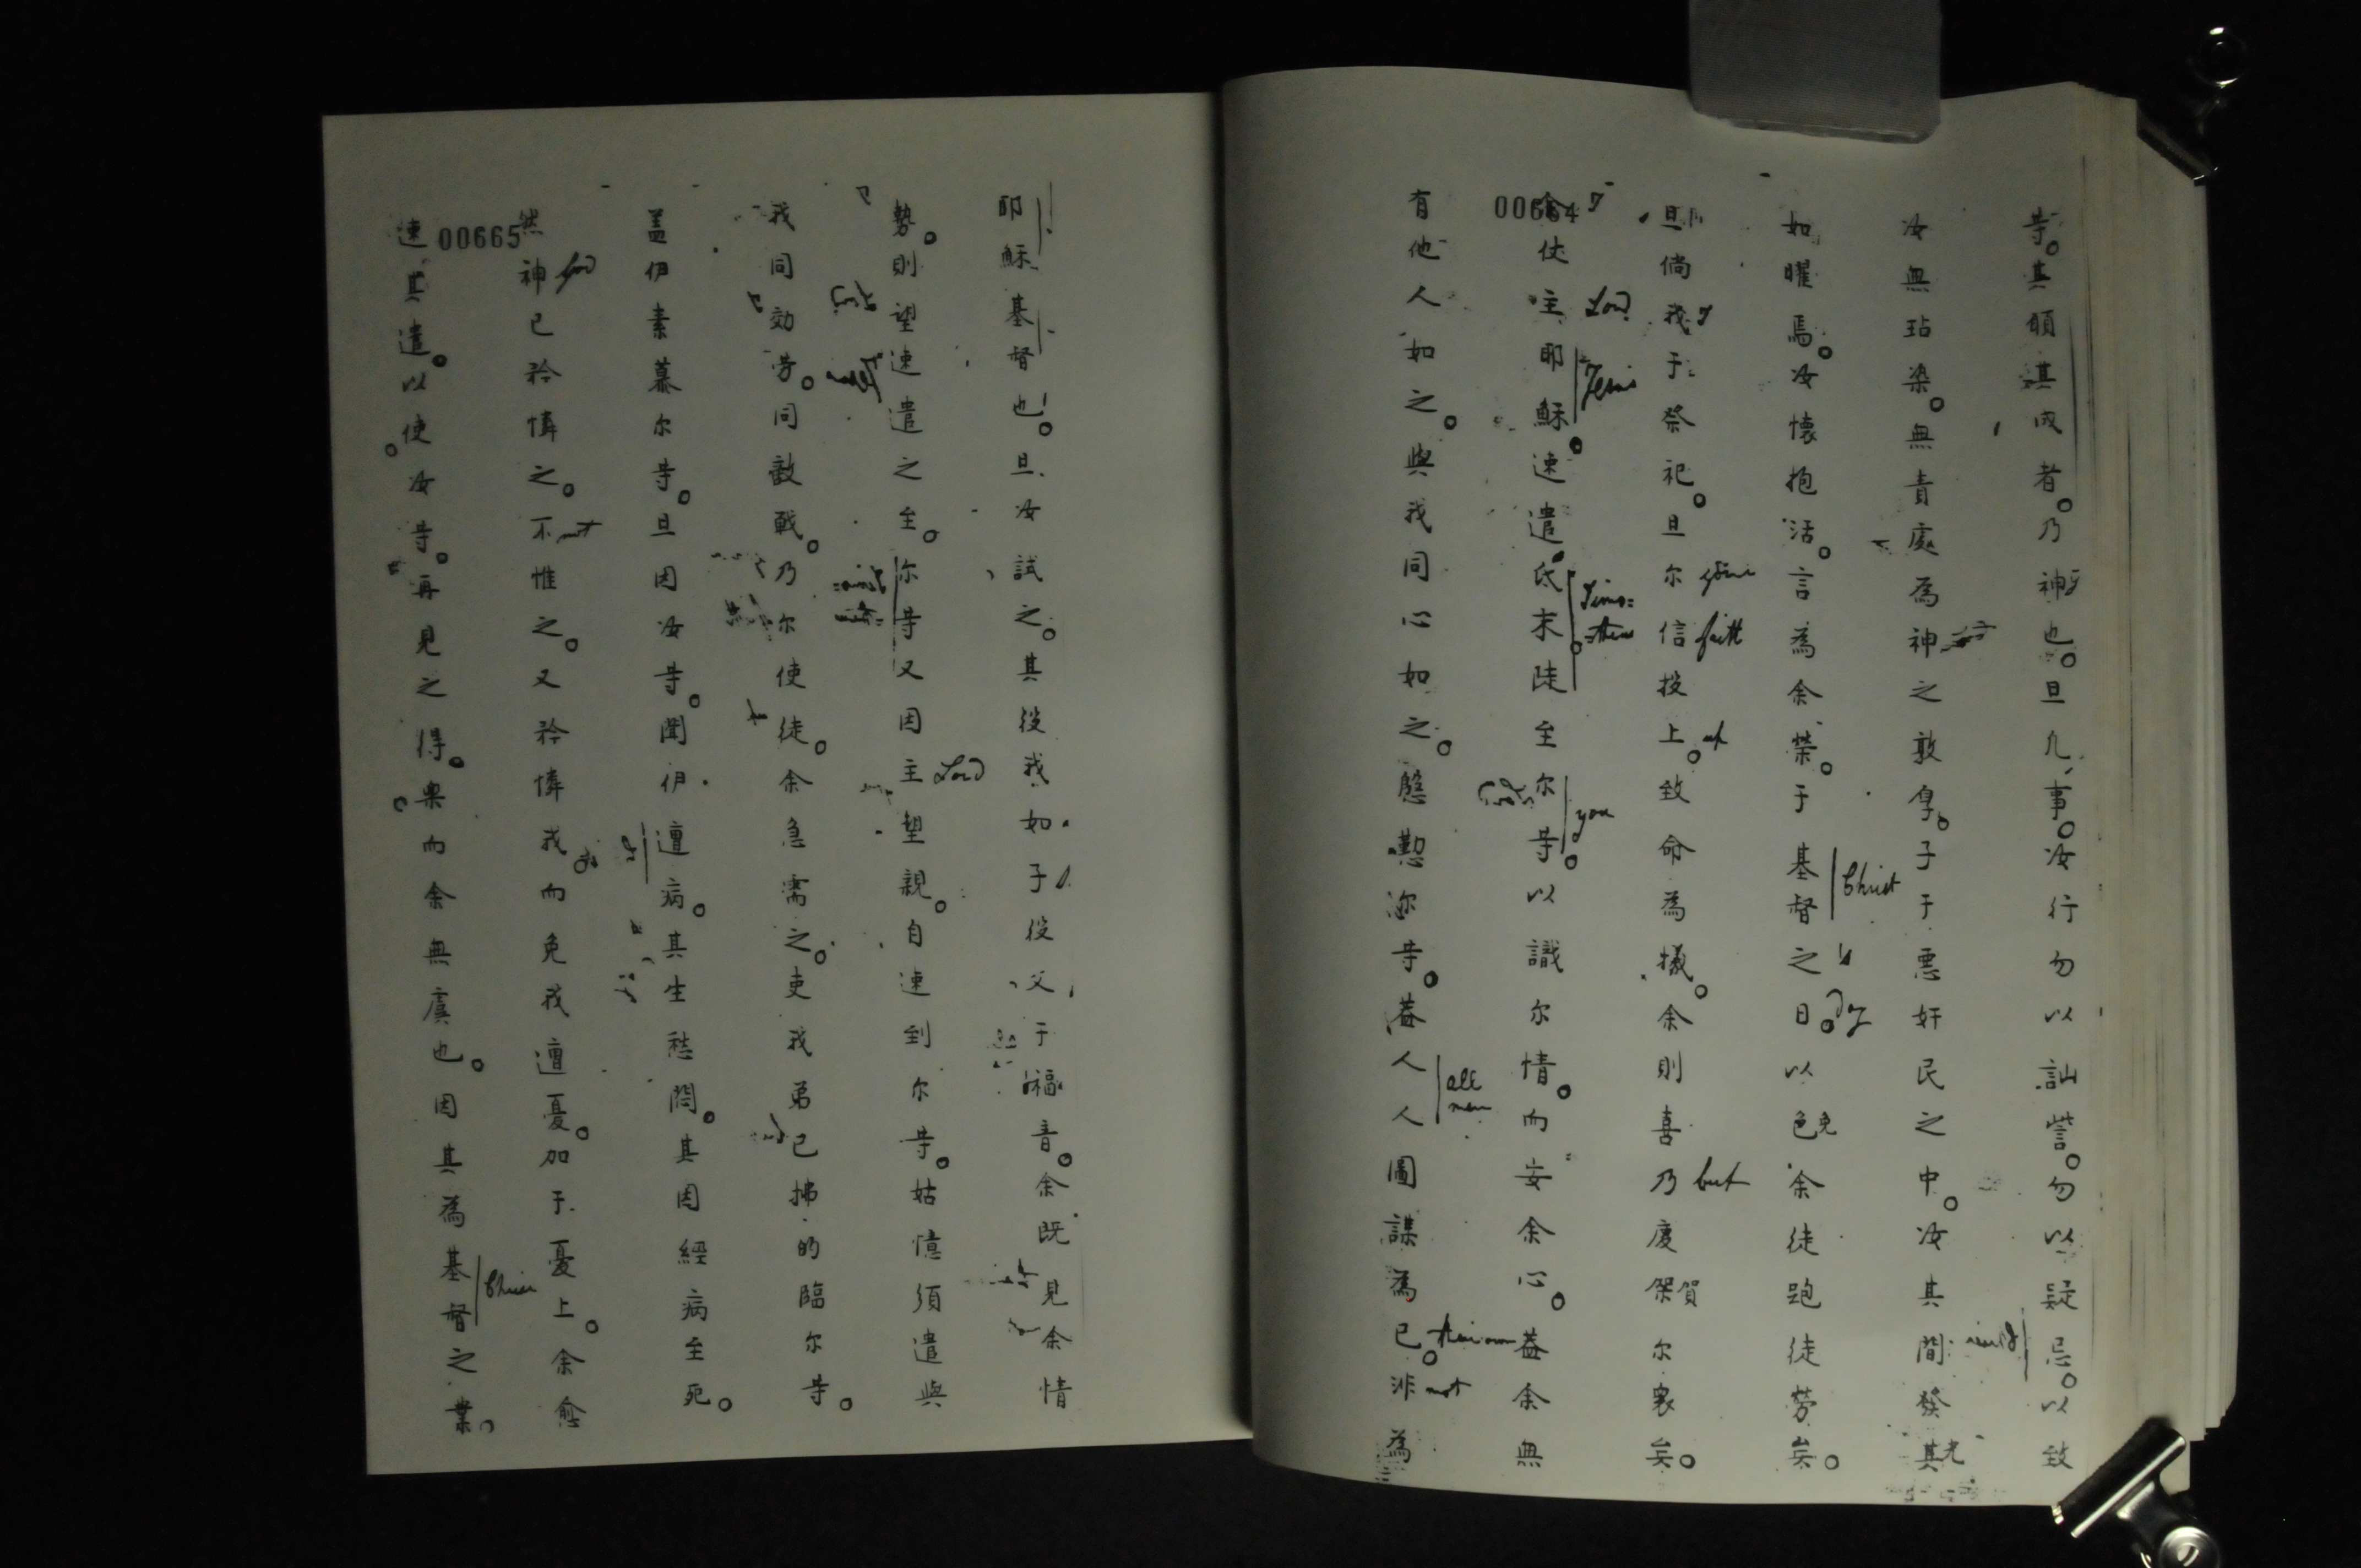 等。其願其成者。乃神也。旦凢事。汝行勿以訕訾。勿以疑忌。以致
汝無玷染。無責處為神之敦㝇。子于悪奸民之中。汝其間發其光
如曜焉。汝懷抱活。言為余榮。于基督之日。以色免余徒跑徒劳矣。
Christ
day
旦倘我于祭祀。旦尔信投上。致命為犠。余則喜乃慶傑賀尔衆矣。
your
faith
but
00664
仗主耶穌。速遣氐末陡至尔等。以識尔情。而安余心。葢余無
Lord
Jesus
Timo=
=theus
you
有他人如之。與我同心如之。慇懃沵等。葢人人圖謀為已。非為
all
men
their own
not
耶穌基督也。旦汝試之。其役我如子役父于福音。余既見余情
勢。則望速遣之至。尔等又因主望親。自速到尔等。姑憶須遣與
Lord
我同効劳。同敵戰。乃尔使徒。余急需之。吏我弟已拂的臨尔等。
盖伊素慕尔等。旦因汝等。聞伊遭病。其生愁悶。其因經病至死。
然神已矜憐之。不惟之。又矜憐我而免我遭憂。加于憂上。余愈
God
not
00665
速其遣。以使汝等。再見之得。樂而余無虞也。因其為基督之業。